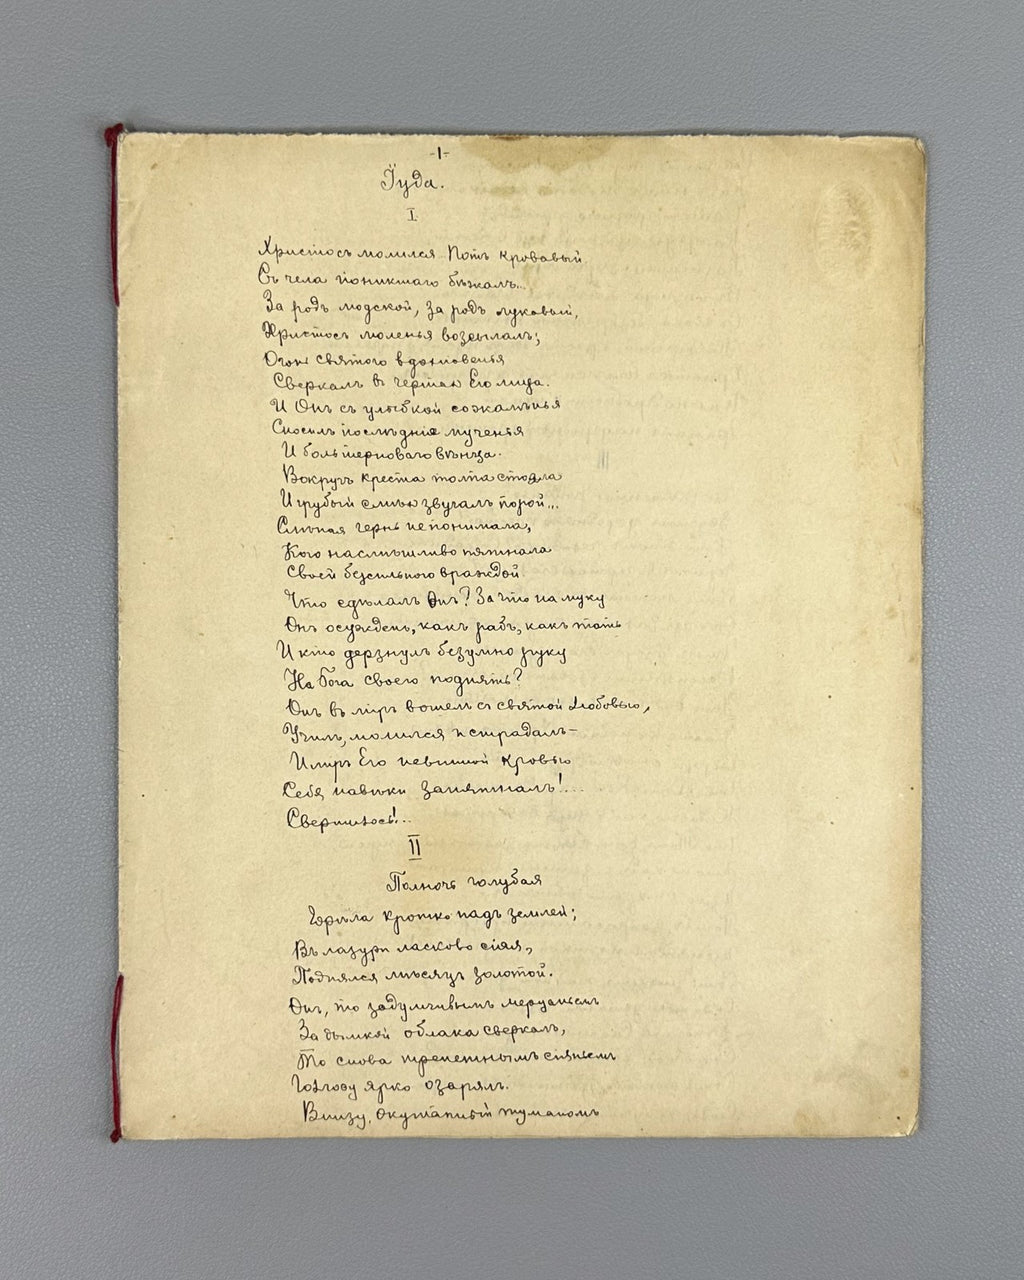 -1-
Іуда.
I
Христосъ молился.. Потъ кровавый
Съ чела поникшаго бѣжалъ...
За родъ людской, за родъ лукавый,
Христосъ моленья возсылалъ;
Огонь святого вдохновенья
Сверкалъ въ чертахъ Его лица.
И Онъ съ улыбкой сожалѣнья
Сносилъ послѣдніе мученья
И боль терноваго вѣнца.
Вокругъ креста толпа стояла
И грубый смѣхъ звучалъ порой...
Слѣпая чернь не понимала,
Кого насмѣшливо пятнала
Своей безсильного враждой.
Что сдѣлалъ Онъ? За что на муку
Онъ осужденъ, какъ рабъ, какъ тать
И кто дерзнулъ безумно руку
На Бога своего поднять?
Онъ въ міръ вошелъ съ святой любовью,
Училъ, молился и страдалъ-
И міръ Его невинной кровью
Себя навѣки запятналъ!...
Свершилось!..
II
Полночь голубая
Горѣла кротко надъ землей;
Въ лазури ласково сіяя,
Поднялся мѣсяцъ золотой.
Онъ, то задумчивымъ мерцаньемъ
За дымкой облака сверкалъ,
То снова трепетнымъ сіяньемъ
Голгоѳу ярко озарялъ.
Внизу, окутанный туманомъ